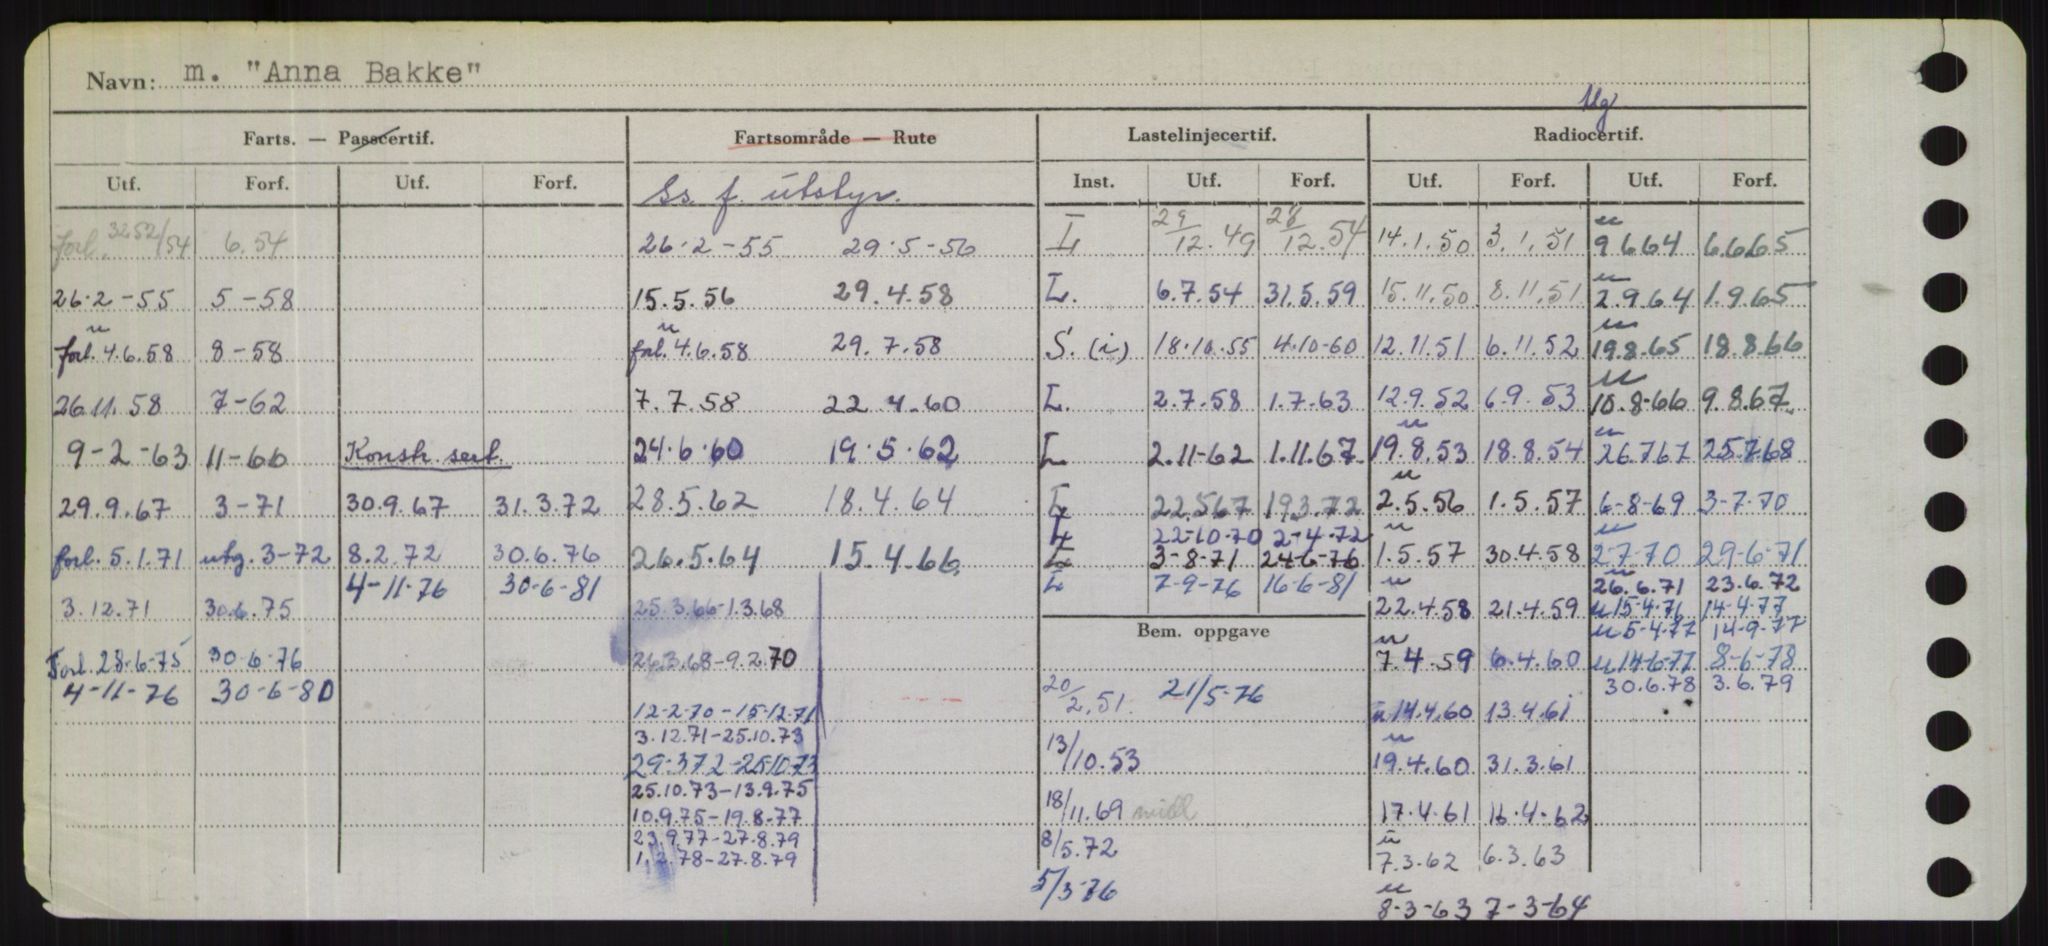 Navn: m. "Anna Bakke"
Mg
Farts. — Passcertif. Fartsområde — Rute Lastelinjecertif. Radiocertif.
Utf. Forf. Utf. Forf. Ss. f. utstyr. Inst. Utf. Forf. Utf. Forf. Utf. Forf.
forl. 3252/54 6.54 26.2-55 29.5-56 L 29/12.49 28/12.54 14.1.50 3.1.51 u 9.6.64 6.6.65
26.2-55 5-58 15.5.56 29.4.58 L. 6.7.54 31.5.59 15.11.50 8.11.51 u 2.9.64 1.9.65
forl. u 4.6.58 8-58 forl. u 4.6.58 29.7.58 S. (i) 18.10.55 4.10-60 12.11.51 6.11.52 u 19.8.65 18.8.66
26.11.58 7-62 7.7.58 22.4.60 L. 2.7.58 1.7.63 12.9.52 6.9.53 u 10.8-66 9.8.67
9-2-63 11-66 Konstr. sert. 24.6.60 19.5.62 L 2.11-62 1.11.67 u 19.8.53 18.8.54 u 26.7.67 25.7.68
29.9.67 3-71 30.9.67 31.3.72 28.5.62 18.4.64 L 22.5.67 19.3.72 u 2.5.56 1.5.57 6-8-69 3-7-70
L 22-10-70 2-4-72
forl. 5.1.71 utg. 3-72 8.2.72 30.6.76 26.5.64 15.4.66 L 3-8-71 24-6-76 u 1.5.57 30.4.58 u 2-7-70 29-6-71
4-11-76 30-6-81 L 7-9-76 16-6-81 u 26.6.71 23.6.72
3.12.71 30.6.75 25.3.66-1.3.68 u 22.4.58 21.4.59 u 15-4-76 14-4-77
Bem. oppgave u 5-4-77 14-9-77
Forl. 28-6-75 30-6-76 26.3.68-9.2.70 u 7.4.59 6.4.60 u 14-6-77 8-6-78
4-11-76 30-6-80 20/2.51. 21/5-76 30.6.78 3.6.79
12-2-70-15-12-71 u 14.4.60 13.4.61
3.12.71-25.10.73
29-3-72-25-10-73 13/10.53 u 19.4.60 31.3.61
25.10.73-13.9.75
10.9.75-19.8-77 18/11.69 midl 17.4.61 16.4.62
23.9.77-27.8.79 8/5.72
1.2.78-27.8.79 u 7.3.62 6.3.63
5/3-76 u 8-3-63 7-3-64